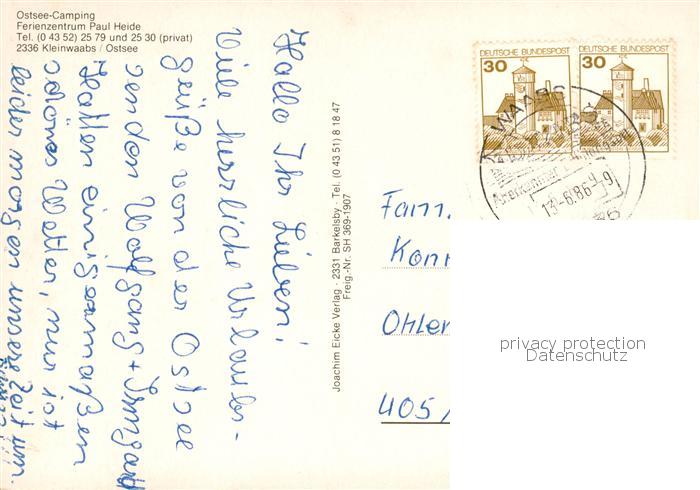 Ostsee-Camping
Ferienzentrum Paul Heide
Tel. (0 43 52) 25 79 und 25 30 (privat)
2336 Kleinwaabs / Ostsee
Hallo Ihr Lieben!
Viele herzliche Urlaubs-
grüße von der Ostsee
senden Wolfgang + Irmgard
Hatten einigermaßen
schönes Wetter, nur ist
leider morgen unsere Zeit um.
Joachim Eicke Verlag · 2331 Barkelsby · Tel. (0 43 51) 8 18 47
Freig.-Nr. SH 369-1907
DEUTSCHE BUNDESPOST
30
DEUTSCHE BUNDESPOST
30
WAABS
13.-6.86-9
Fam.
Konr
Ohler
405
privacy protection
Datenschutz